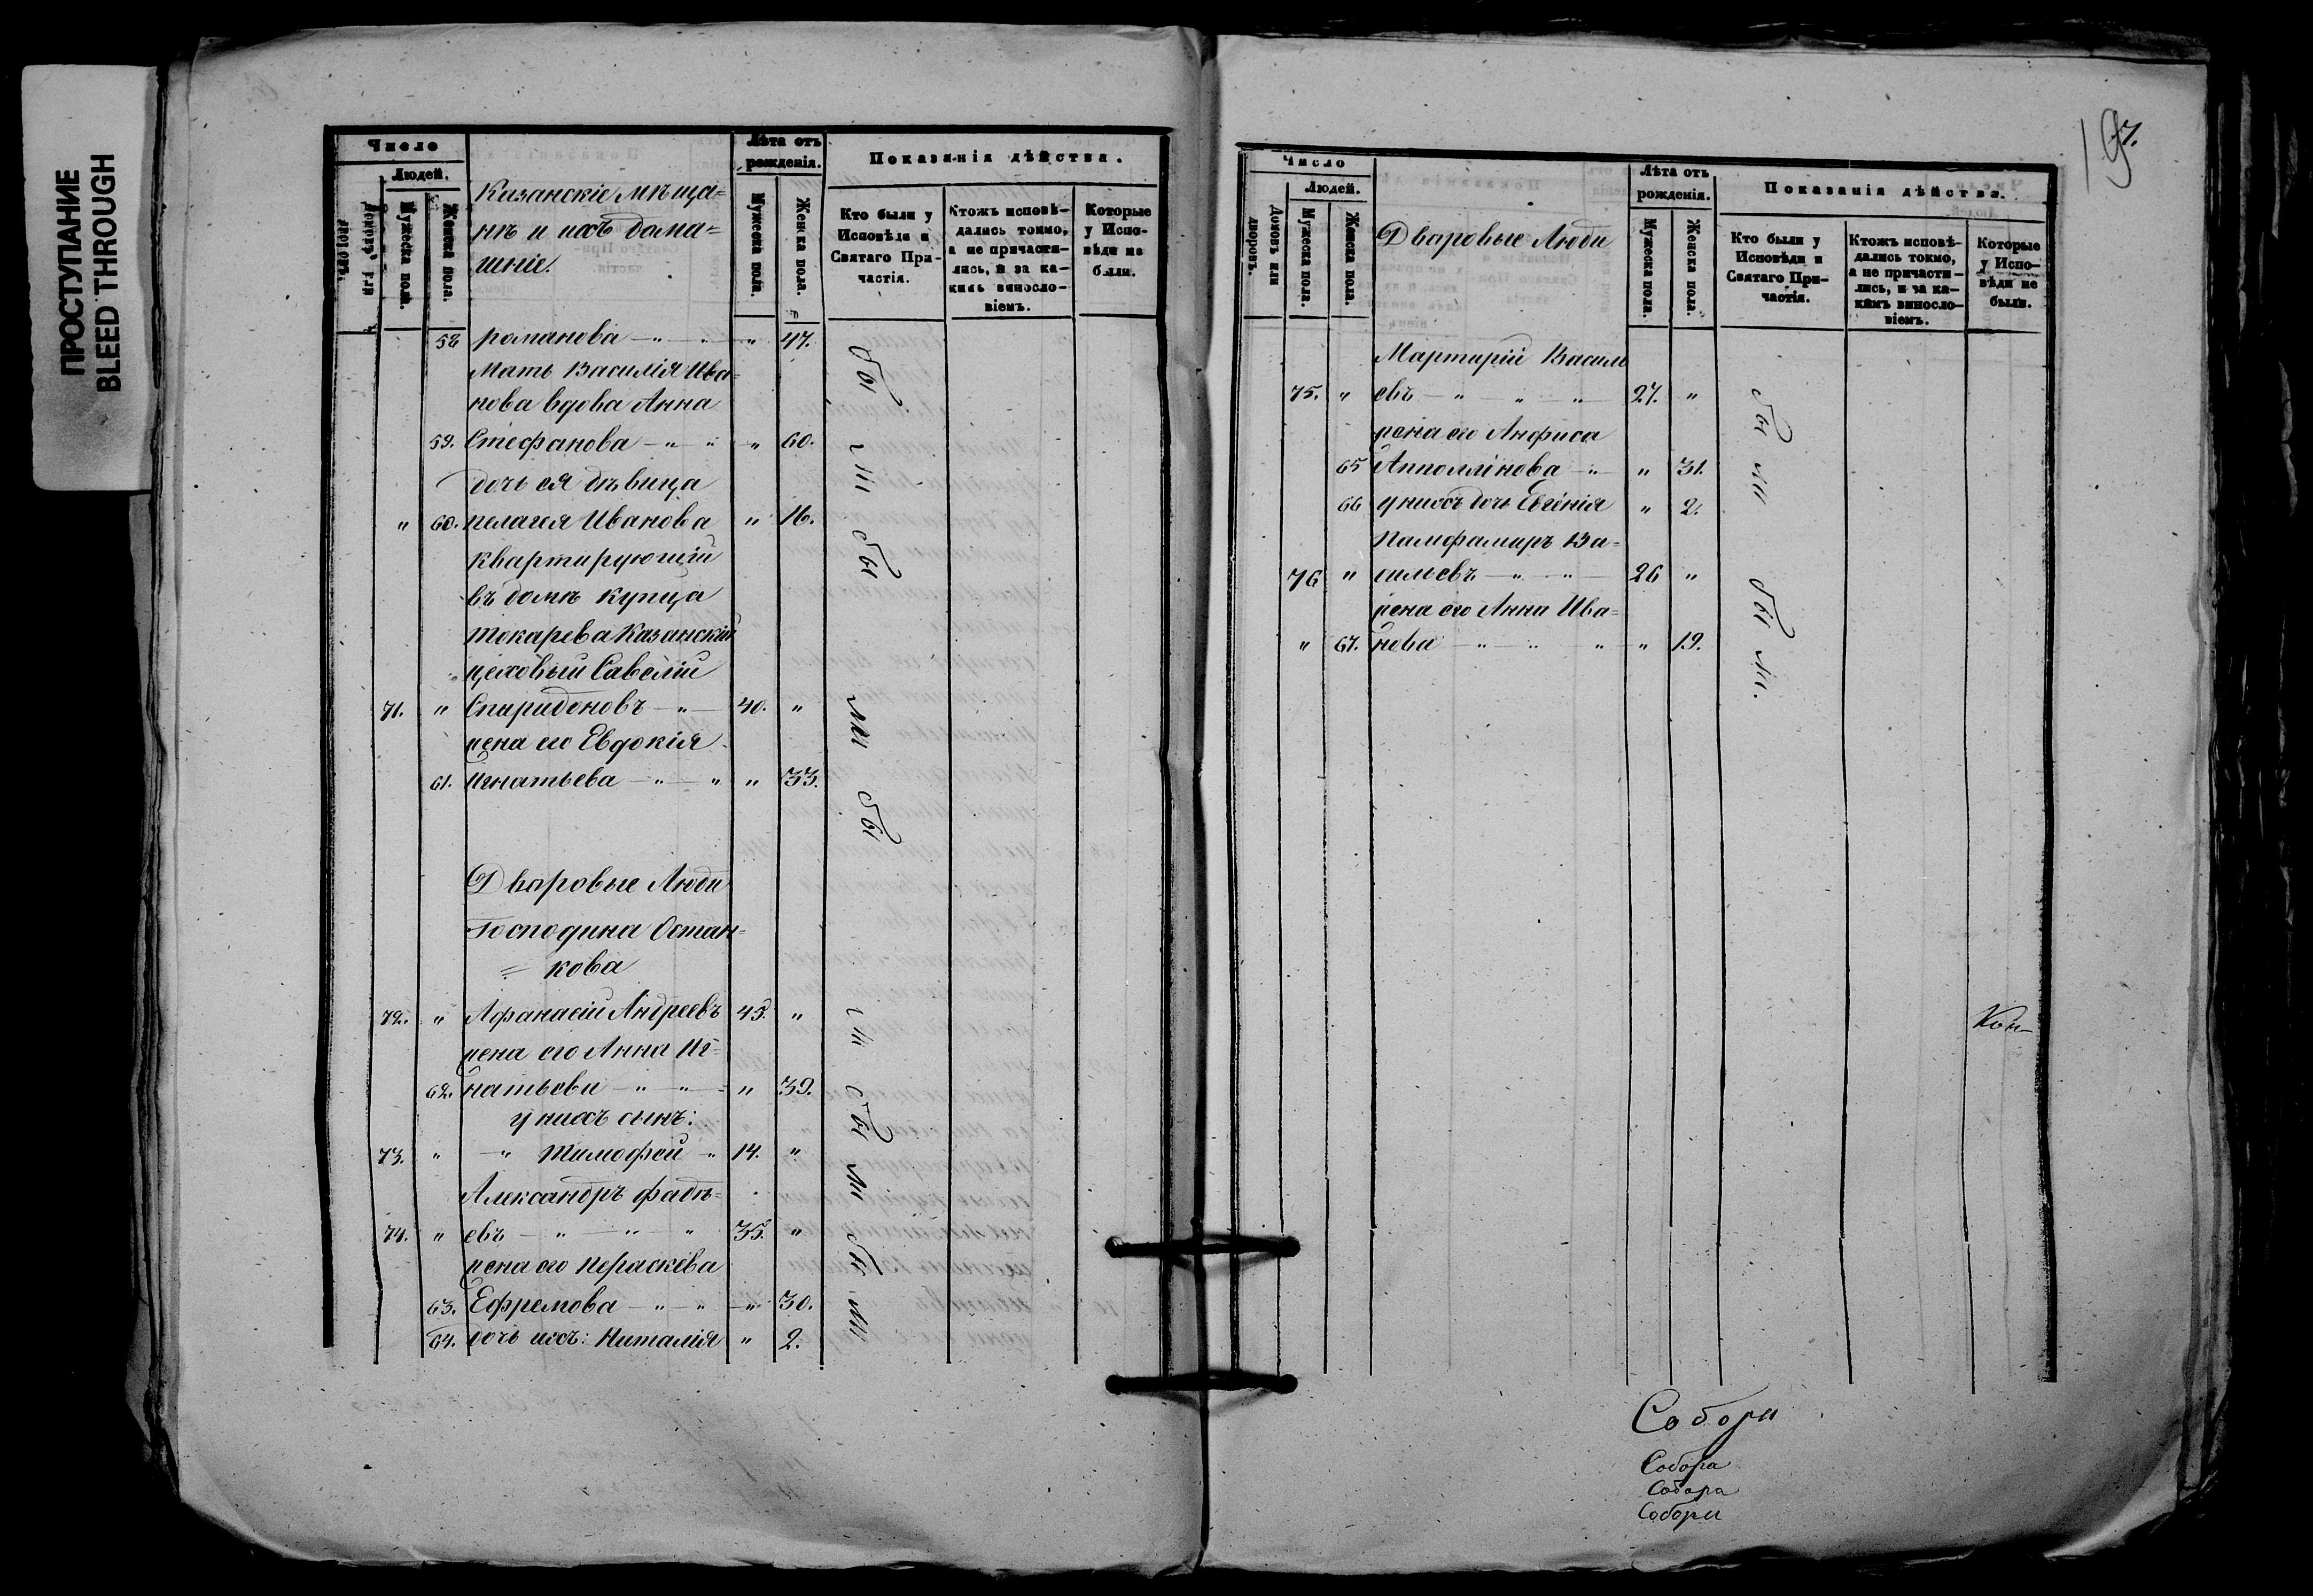 ПРОСТУПАНИЕ
BLEED THROUGH
Число
Людей.
Домовъ или дворовъ.
Мужеска пола.
Женска пола.
Казанскіе мѣща=
не и ихъ дома=
шніе.
Лѣта отъ
рожденія.
Мужеска пола.
Женска пола.
Показанія дѣйства.
Кто были у
Исповѣди и
Святаго При-
частія.
Ктожъ исповѣ-
дались токмо,
а не причасти-
лись, и за ка-
кимъ винносло-
віемъ.
Которые
у Испо-
вѣди не
были.
58 романова — " — " — " 47.
Мать Василія Ива=
нова вдова Анна
59. Стефанова — " " — " 60.
дочь ея дѣвица
" 60. пелагея Иванова " 16.
квартирующій
въ домѣ купца
токарева Казанскій
цеховый Савелій
71. " Спиридоновъ — " — 40. "
жена его Евдокія
61. Игнатьева — " — " " 33.
были
были
были
Дваровые Люди
Господина Остан=
= кова
72. " Афанасій Андреевъ 45. "
жена его Анна Иг=
62. натьева — " — " — " 39.
у нихъ сынъ:
73. " — " Тимофей " 14. "
Александръ фадѣ=
74. " евъ — " — " — " 35. "
жена его Пераскева
63. Ефремова — " — " — " 30.
64. дочь ихъ: Наталія " 2.
были
были
197.
Число
Людей.
Домовъ или дворовъ.
Мужеска пола.
Женска пола.
Дваровые Люди
Лѣта отъ
рожденія.
Мужеска пола.
Женска пола.
Показанія дѣйства.
Кто были у
Исповѣди и
Святаго При-
частія.
Ктожъ исповѣ-
дались токмо,
а не причасти-
лись, и за ка-
кимъ винносло-
віемъ.
Которые
у Испо-
вѣди не
были.
Мартирій Василь
75. " евъ — " — " — " — 27. "
жена его Анфиса
65 Апполлінова — " — " 31.
66 у нихъ дочь Евгенія " 2.
Памфамиръ Ва=
76 " сильевъ — " — " — 26 "
жена его Анна Ива=
" 67. нова — " — " — " — " 19.
были
были.
Кон-
Собора
Собора
Собора
Собора